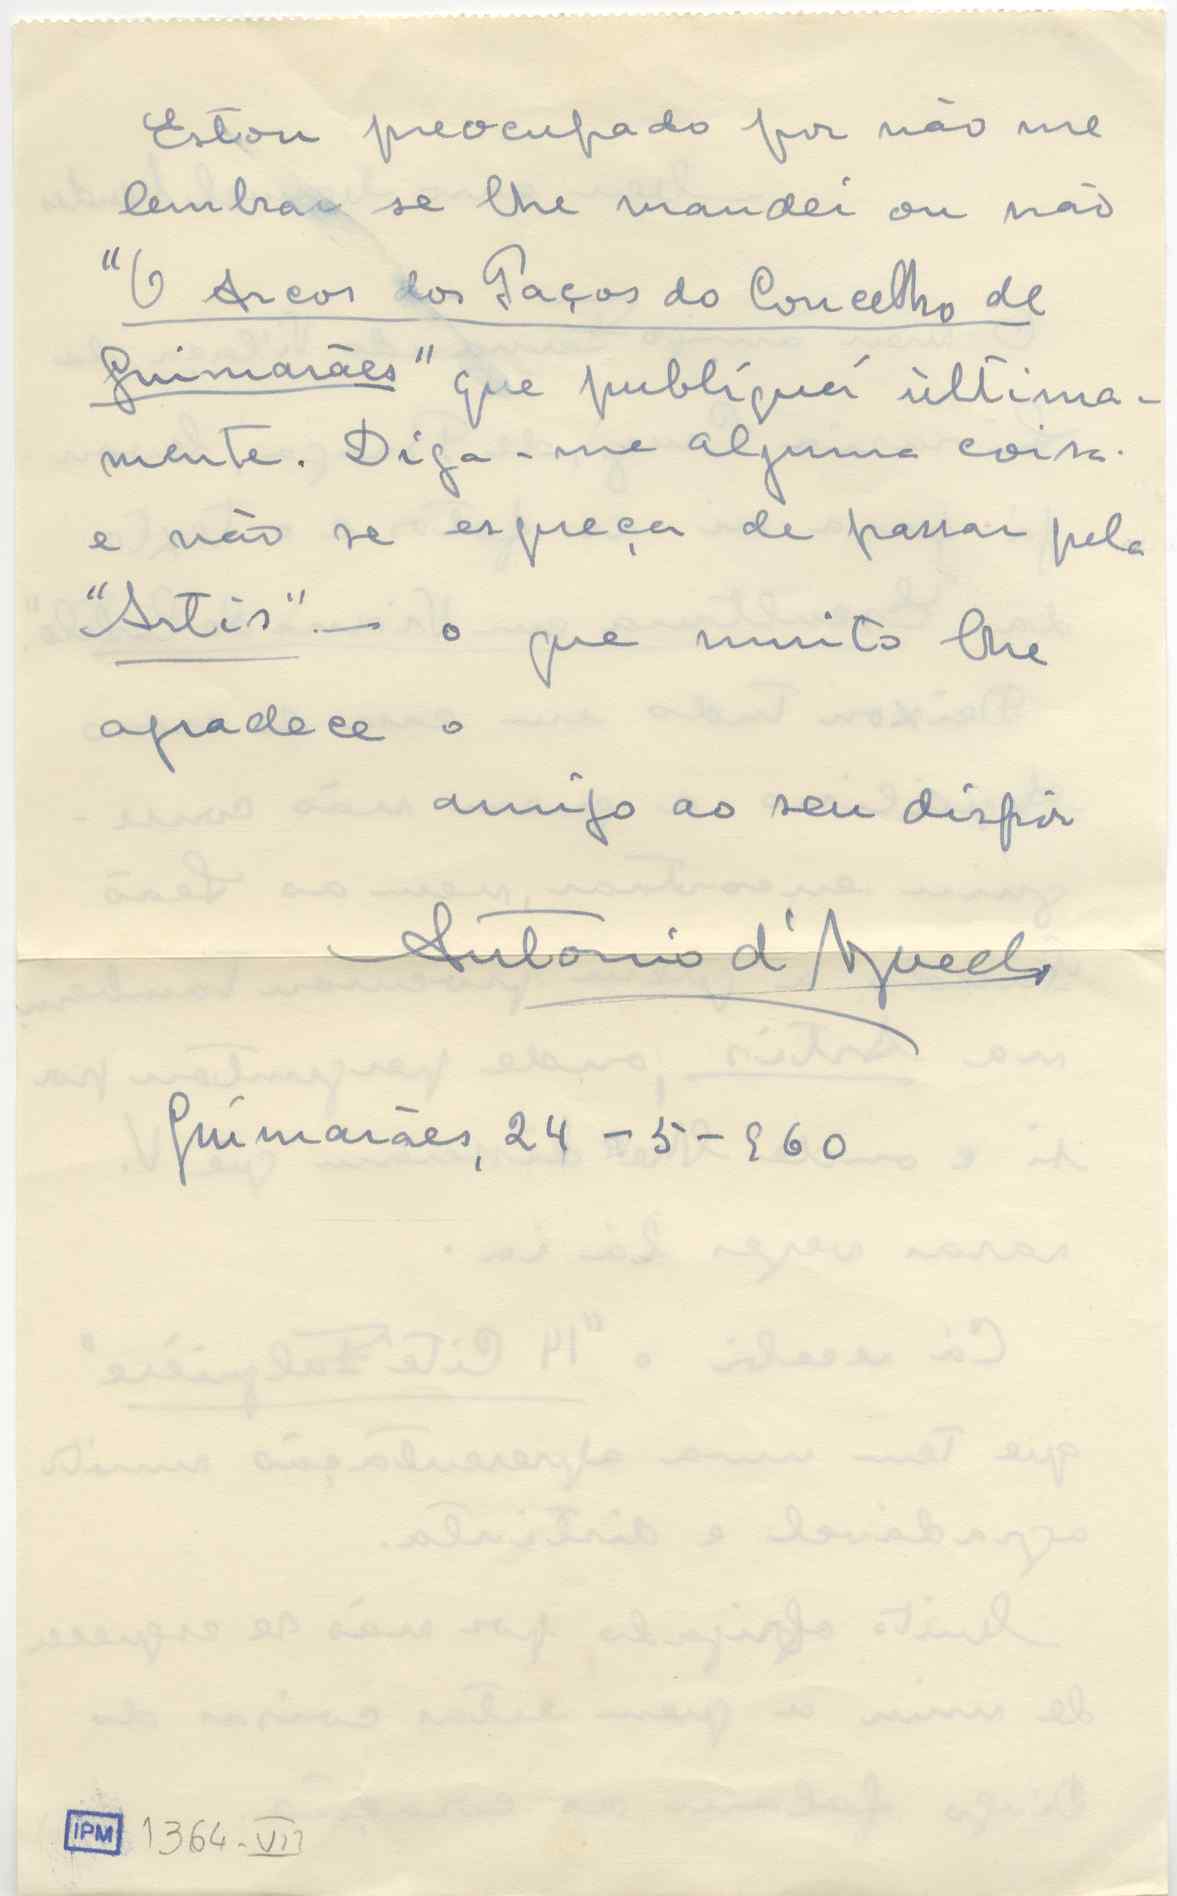 Estou preocupado por não me
lembrar se lhe mandei ou não
"O Arcos dos Paços do Concelho de
Guimarães" que publiquei ùltima-
mente. Diga-me alguma coisa.
e não se esqueça de passar pela
"Artis" — o que muito lhe
agradece o
amigo ao seu dispôr
António d'Azevedo
Guimarães, 24-5-960
IPM 1364-VII